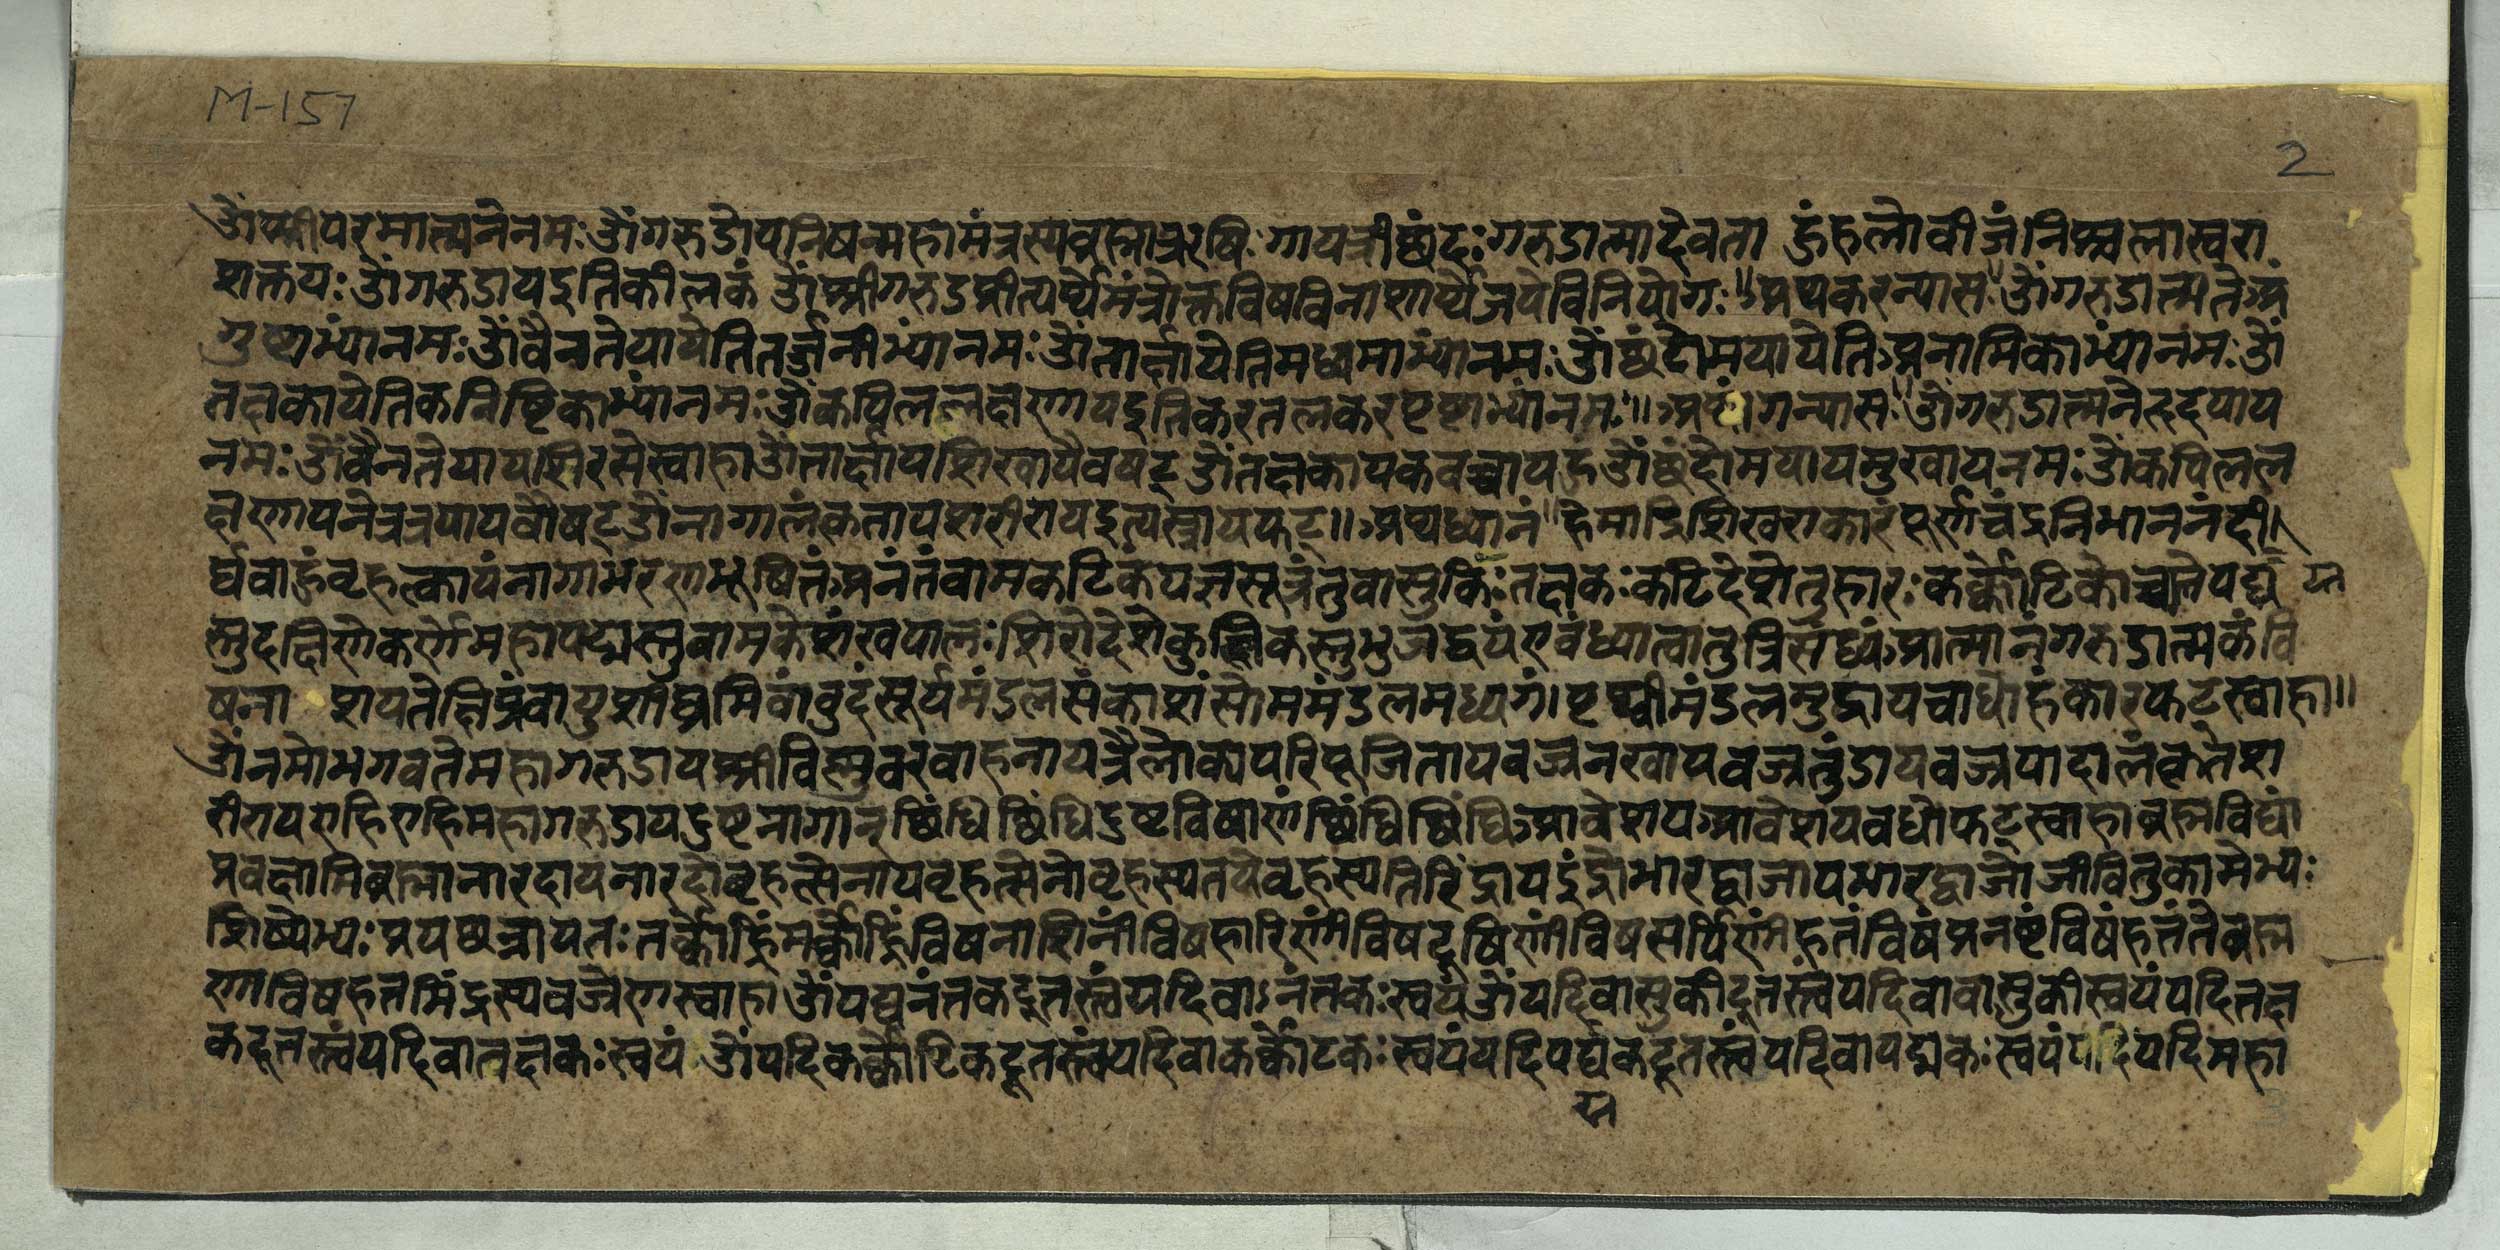 M-157
2
ॐश्रीपरमात्मनेनमः ॐगरुडोपनिषन्महामंत्रस्यब्रह्माऋषि गायत्रीछंदः गरुडात्मादेवता हुंहलोबीजं स्वरा
शक्तयः ॐगरुडायइतिकीलकं ॐश्रीगरुडप्रीत्यर्थेमंत्रोक्तविषविनाशार्थेजपेविनियोगः ॥ अथकरन्यास ॥ ॐगरुडात्मनेअं
गुष्टाभ्यांनमः ॐवैनतेयायेतितर्ज्जनीभ्यांनमः ॐतार्क्षायेतिमध्यमाभ्यांनमः ॐछंदोमयायेतिअनामिकाभ्यांनमः ॐ
तक्षकायेतिकनिष्टिकाभ्यांनमः ॐकपिललक्षणयइतिकरतलकरपृष्टाभ्यांनमः ॥ गन्यासः ॥ ॐगरुडात्मनेहृदयाय
नमः ॐवैनतेयायशिरसेस्वाहाॐतार्क्षायशिखायैवषट्ॐतक्षकायकवचायहुॐछंदोमयायमुखायनमः ॐकपिलल
क्षणयनेत्रत्रयायवौषट्ॐनागालंकृतायशरीरायइत्यस्त्रायफट् ॥ अथध्यानं ॥ हेमाद्रिशिखराकारंपूर्णचंद्रनिभाननंदी
र्घबाहुंबृहत्कायंनागाभरणभूषितंअनंतंवामकटिकंयज्ञसूत्रंतुवासुकिः तक्षकः कटिदेशेतुहारः कर्क्कोटिकोच्यतेपद्म
स्तुदक्षिणेकर्णेमहापद्मस्तुवामकेशंखपालः शिरोदेशेकुलिकस्तुभुजद्वयंएवंध्यात्वातुत्रिसंध्यंआत्मानंगरुडात्मकंवि
षना शयतेक्षिप्रंवायुशीघ्रमिवांबुदंसूर्यमंडलसंकाशंसोममंडलमध्यगं।पृथ्वीमंडलमुद्राय स्वाहा ॥
ॐनमोभगवतेमहागरुडायश्रीविष्णुवरवाहनायत्रैलोक्यपरिपूजितायवज्रनखायवज्रतुंडायवज्रपादालंकृतश
रीरायएहिएहिमहागरुडायदुष्टनागान्छिंधिछिंधिदुष्टविषाणंछिंधिछिंधिआवेशयआवेशयवधोफट्स्वाहाब्रह्मविद्यां
प्रवक्षामिब्रह्मानारदायनारदोबृहत्सेनायबृहत्सेनोबृहस्पतयेबृहस्पतिरिंद्रायइंद्रोभारद्वाजायभारद्वाजोजीवितुकामेभ्यः
शिष्येभ्यः प्रयछन्नायतः विषनाशिनींविषहारिणींविषदूषिणींविषसर्पिणींहतंविषंप्रनष्टंविषंहतंतेब्रह्म
णाविषहतमिंद्रस्यवज्रेणस्वाहा ॐयद्यनंतकदूतस्त्वंयदिवाऽनंतकः स्वयंॐयदिवासुकीदूतस्त्वंयदिवावासुकीस्वयंयदितक्ष
कदूतस्त्वंयदिवातक्षकः स्वयं ॐयदिकर्क्कोटिकदूतस्त्वंयदिवाकर्क्कोटकः स्वयंयदिपद्मकदूतस्त्वंयदिवापद्मकः स्वयंयदियदिमहा